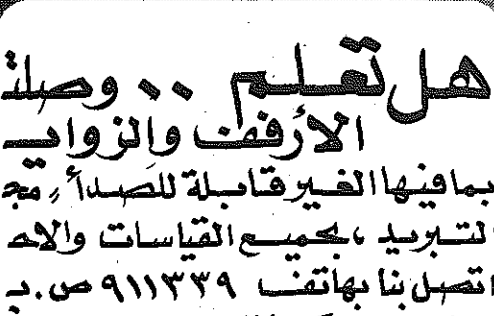 هل تعلم .. وصلت
الأرفف والزوايـ
بما فيها الغير قابلة للصدأ ، مجـ
لتبريد ، بجميع القياسات والأحـ
اتصل بنا بهاتف ٩١١٣٣٩ ص.ب